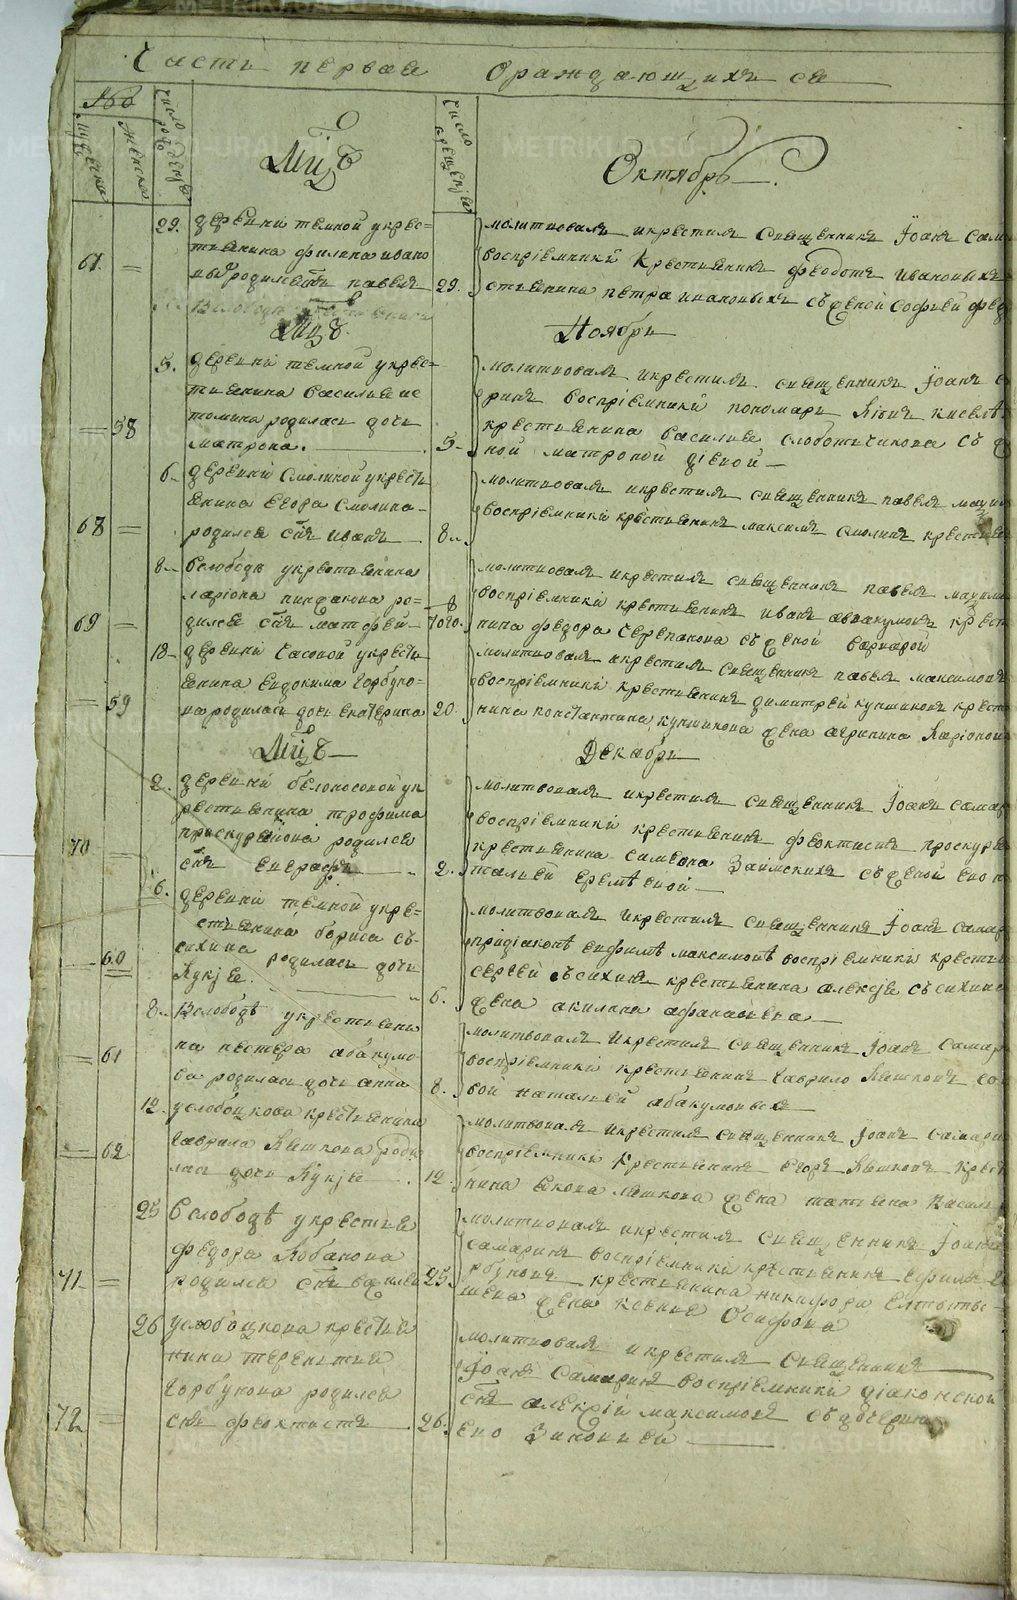 Часть первая о раждающихся
№
мужеска
женска
число рожденїя
Мцъ
число крещенїя
Октябрь
29. деревни темной укрес=
тьянина филипа ивано
ва родился сн̃ъ павелъ
67.
29.
молитвовалъ икрестилъ священникъ Їоанъ Сама
воспрїемники крестьянинъ федотъ ивановыхъ
стьянина петра ивановыхъ съ женой софьей фед
Мцъ
Ноября
5. деревни темной укрес=
тьянина василья ис
томина родилась дочь
матрона.
58
5
молитвовалъ икрестилъ священникъ Їоанъ с
ринъ воспрїемники пономарь
крестьянина василья слободчикова съ д
ной матроной дѣвой
6. деревни смолиной укресть
янина егора смолина
родился сн̃ъ иванъ
68
8
молитвовалъ икрестилъ священникъ павелъ максим
воспрїемники крестьянинъ максимъ смолинъ крестьян
8 вслободѣ укрестьянина
ларїона пиндакова ро=
дился сн̃ъ матфей
69
молитвовалъ икрестилъ священникъ павелъ максим
воспрїемники крестьянинъ иванъ аввакумовъ крест
нина федора черепанова съ женой варварой
18 деревни часовой укресть
янина евдокима горбуно=
ва родилась дочь екатерина
59
20
молитвовалъ икрестилъ священникъ павелъ максимовъ
воспрїемники крестьянинъ димитрей купшиковъ крест
нина константина купшикова жена агрипина ларїонов
Мцъ
Декабря
2. деревни белоносовой ук
рестьянина трофима
проскурякова родился
сн̃ъ евграфъ
70
2.
молитвовалъ икрестилъ священникъ Їоанъ самар
воспрїемники крестьянинъ феоктистъ проскуря
крестьянина симеона Заимскихъ съ женой ево н
тальей еремѣевой
6. деревни темной укре=
стьянина бориса съ=
сихина родилась дочь
Лукїя.
60
6.
молитвовалъ икрестилъ священникъ Їоанъ самар
придїаконѣ ефимѣ максимовѣ воспрїемники крестья
сергей съсихинъ крестьянина алексїя съсихина
жена акилина афанасьева
8 вслободѣ укрестьяни
на нестера абакумо
ва родилась дочь анна
61
8.
молитвовалъ икрестилъ священникъ Їоанъ самар
воспрїемники крестьянинъ гаврило Кышковъ
вой натальей абакумовыхъ
12. услободцкова крестьянина
гаврила Кышкова роди
лась дочь Лукїя
62
12.
молитвовалъ икрестилъ священникъ Їоанъ самари
воспрїемники крестьянинъ егоръ Кышковъ крест
нина якова Кышкова жена татьяна васил
25 вслободѣ укрестья
федора Лобанова
родился сн̃ъ василей
71
25.
молитвовалъ икрестилъ священникъ Їоанъ
самаринъ воспрїемники крестьянинъ ефимъ
рбуновъ крестьянина никифора
шева жена ксения Осифова
26 услободцкова крестья
нина терентия
горбунова родился
сн̃ъ феоктистъ
72
26.
молитвовалъ икрестилъ священникъ
Їоанъ самаринъ воспрїемники дїаконской
сн̃ъ алексїй максимовъ съ дочерью
ево Зиновьей
METRIKI.GASO-URAL.RU